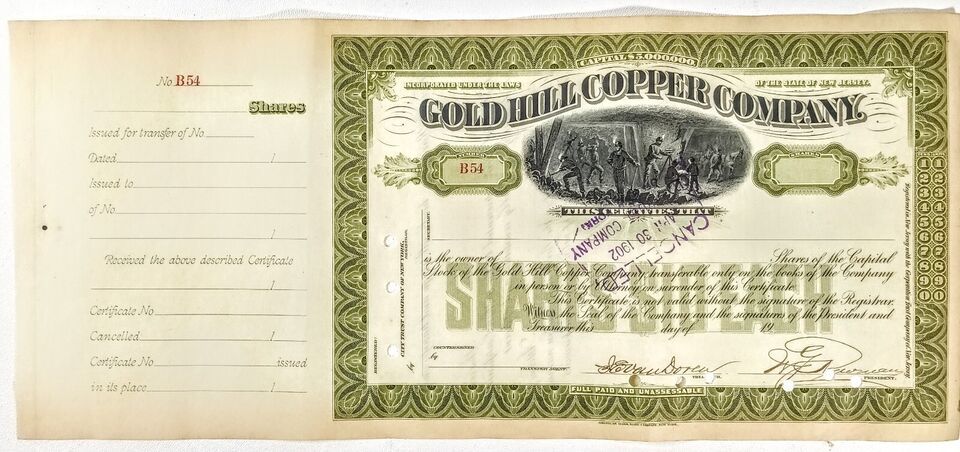 No B54
Shares
Issued for transfer of No
Dated 1
Issued to
of No.
1
Received the above described Certificate
1
Certificate No
Cancelled 1
Certificate No issued
in its place 1
CAPITAL $5,000,000.
INCORPORATED UNDER THE LAWS OF THE STATE OF NEW JERSEY.
GOLD HILL COPPER COMPANY.
B54
SHARES
THIS CERTIFIES THAT
CANCELLED
30 1902
COMPANY
is the owner of Shares of the Capital
Stock of the Gold Hill Copper Company, transferable only on the books of the Company
in person or by Attorney on surrender of this Certificate.
This Certificate is not valid without the signature of the Registrar.
Witness the Seal of the Company and the signatures of the President and
Treasurer this day of 19
SHARES EACH
REGISTERED:
CITY TRUST COMPANY OF NEW YORK,
REGISTRAR.
by
SECRETARY.
COUNTERSIGNED
by
TRANSFER AGENT.
PRESIDENT.
FULL PAID AND UNASSESSABLE